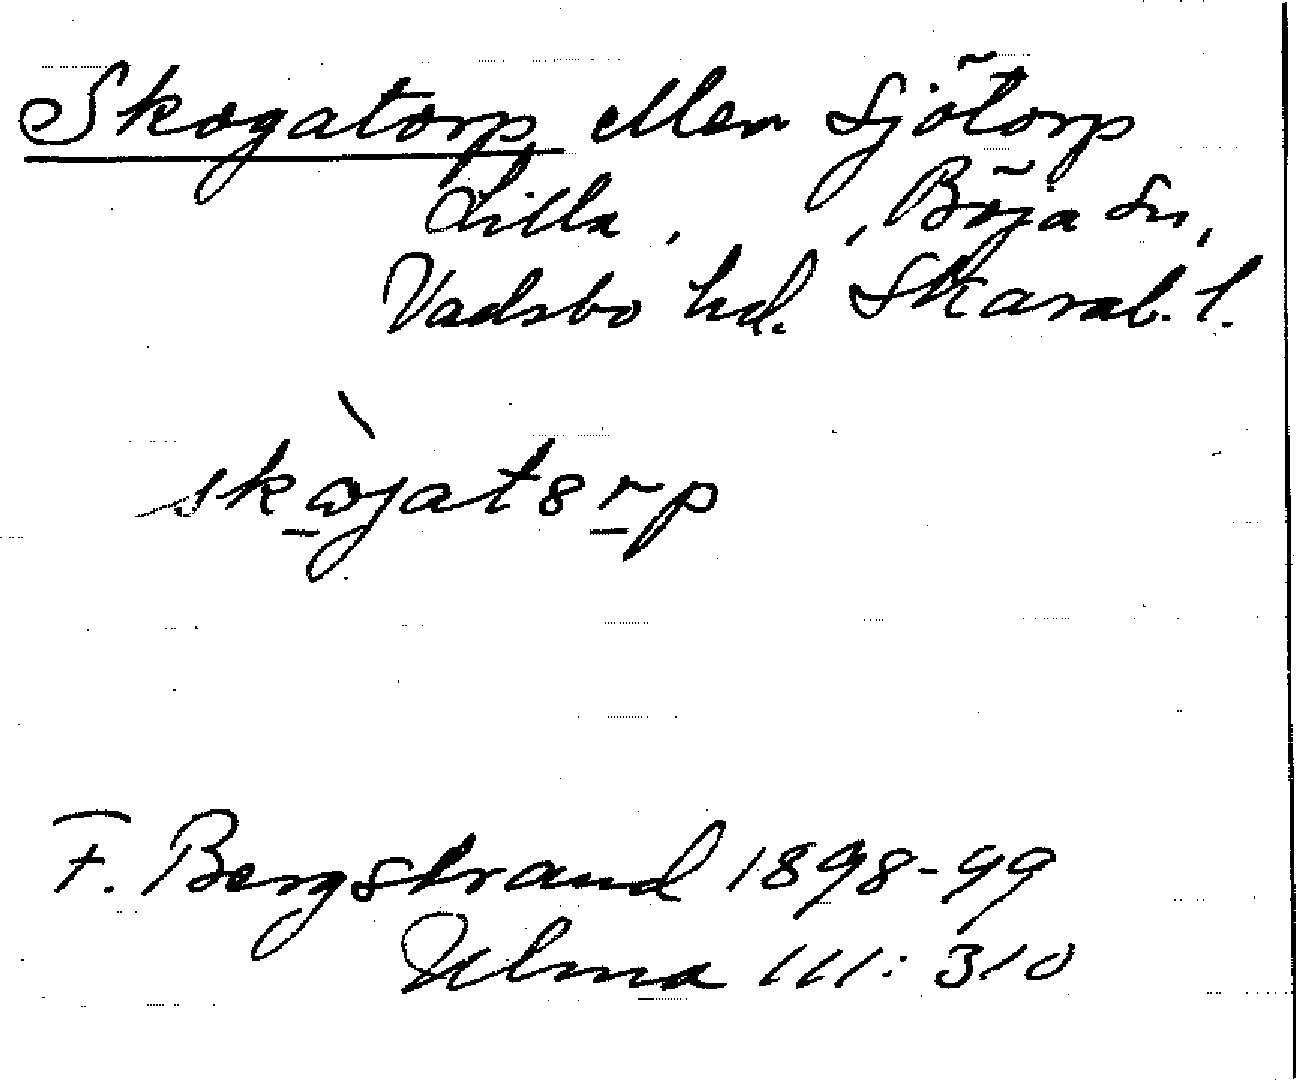 Skogatorp eller Sjötorp
Lilla, , Böja sn,
Vadsbo hd. Skarab. l.
skò̠gat8r̠p
F. Bergstrand 1898-99
Ulma 111:310